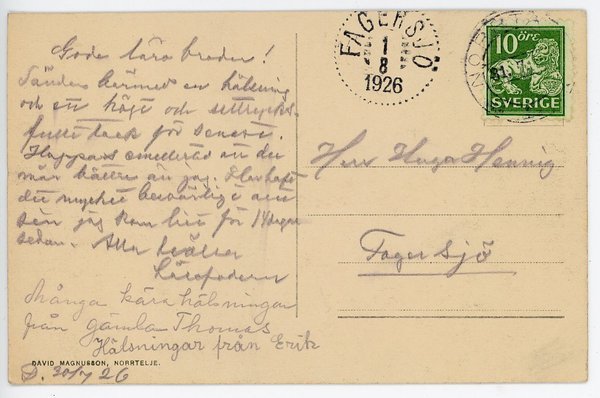 Gode kära broder!
Sänder härmed en hälsning
och ett högt och uttrycks-
fullt tack för senast.
Hoppas emellertid att du
mår bättre än jag. Har haft
det mycket besvärligt allt
sen jag kom hit för 14 dagar
sedan. Alla
Många kära hälsningar
från gamla Thomas
Hälsningar från Erik
DAVID MAGNUSSON, NORRTELJE.
D. 30/7 26
FAGERSJÖ
1
8
1926
10 ÖRE
SVERIGE
Herr Hugo Hennig
Fagersjö